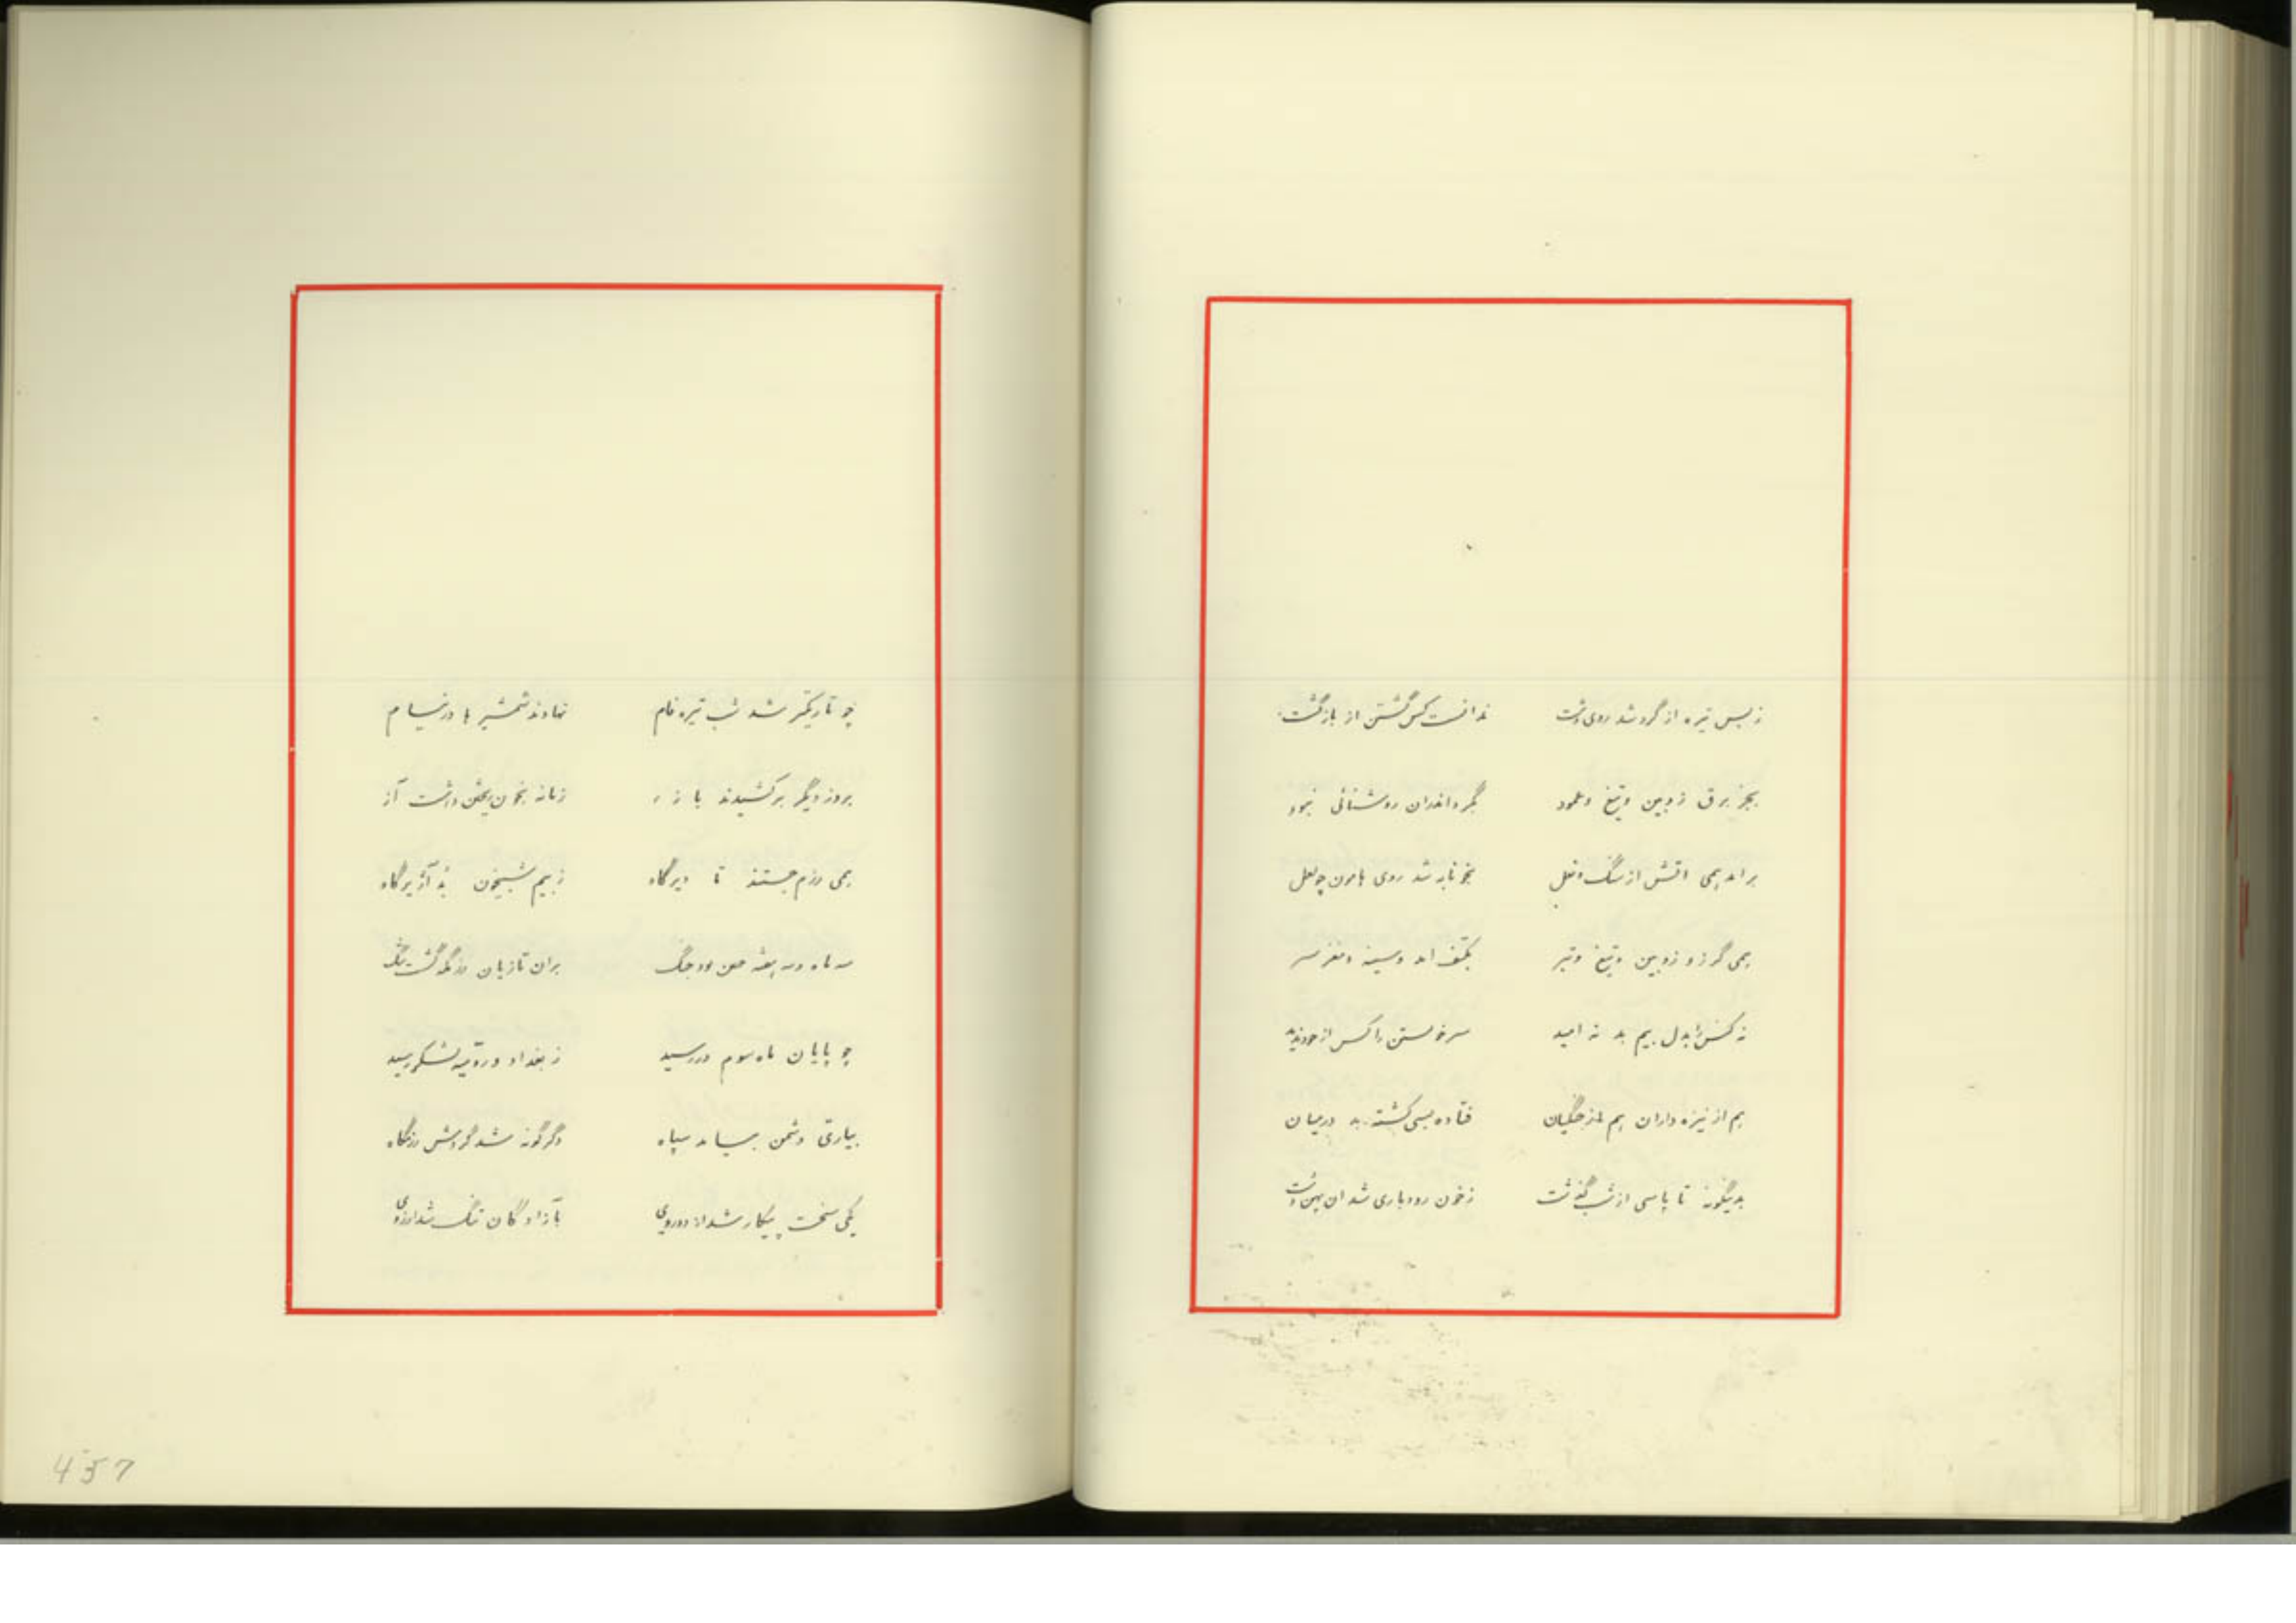 زبس تیره از گرد شد روی دشت ندانست کس گشتن از بازگشت
بجز برق زوبین و تیغ و عمود بگرد اندران روشنائی نبود
بر آمد همی آتش از سنگ و نعل بخونابه شد روی هامون چو لعل
همی گرز و زوبین و تیغ و تبر بکتف آمد و سینه و مغز سر
نه کس را بدل بیم بد نه امید سر خویشتن را کس از خود ندید
هم از نیزه داران هم از جنگیان فتاده بسی کشته بد درمیان
بدینگونه تا پاسی از شب گذشت ز خون رودباری شد ان پهن دشت
چو تاریکتر شد شب تیره فام نهادند شمشیر ها در نیام
بروز دیگر برکشیدند باز زمانه بخون ریختن داشت آز
همی رزم جستند تا دیرگاه ز بیم شبیخون
سه ماه و سه هفته چنین بود جنگ بران تازیان رزمگه گشت تنگ
چو پایان ماه سوم در رسید ز بغداد و رقیه لشکر رسید
بیاری دشمن بیامد سپاه دگرگونه شد گردش رزمگاه
یکی سخت پیکار شد از دوروی بآزادگان تنگ شد ارزوی
457